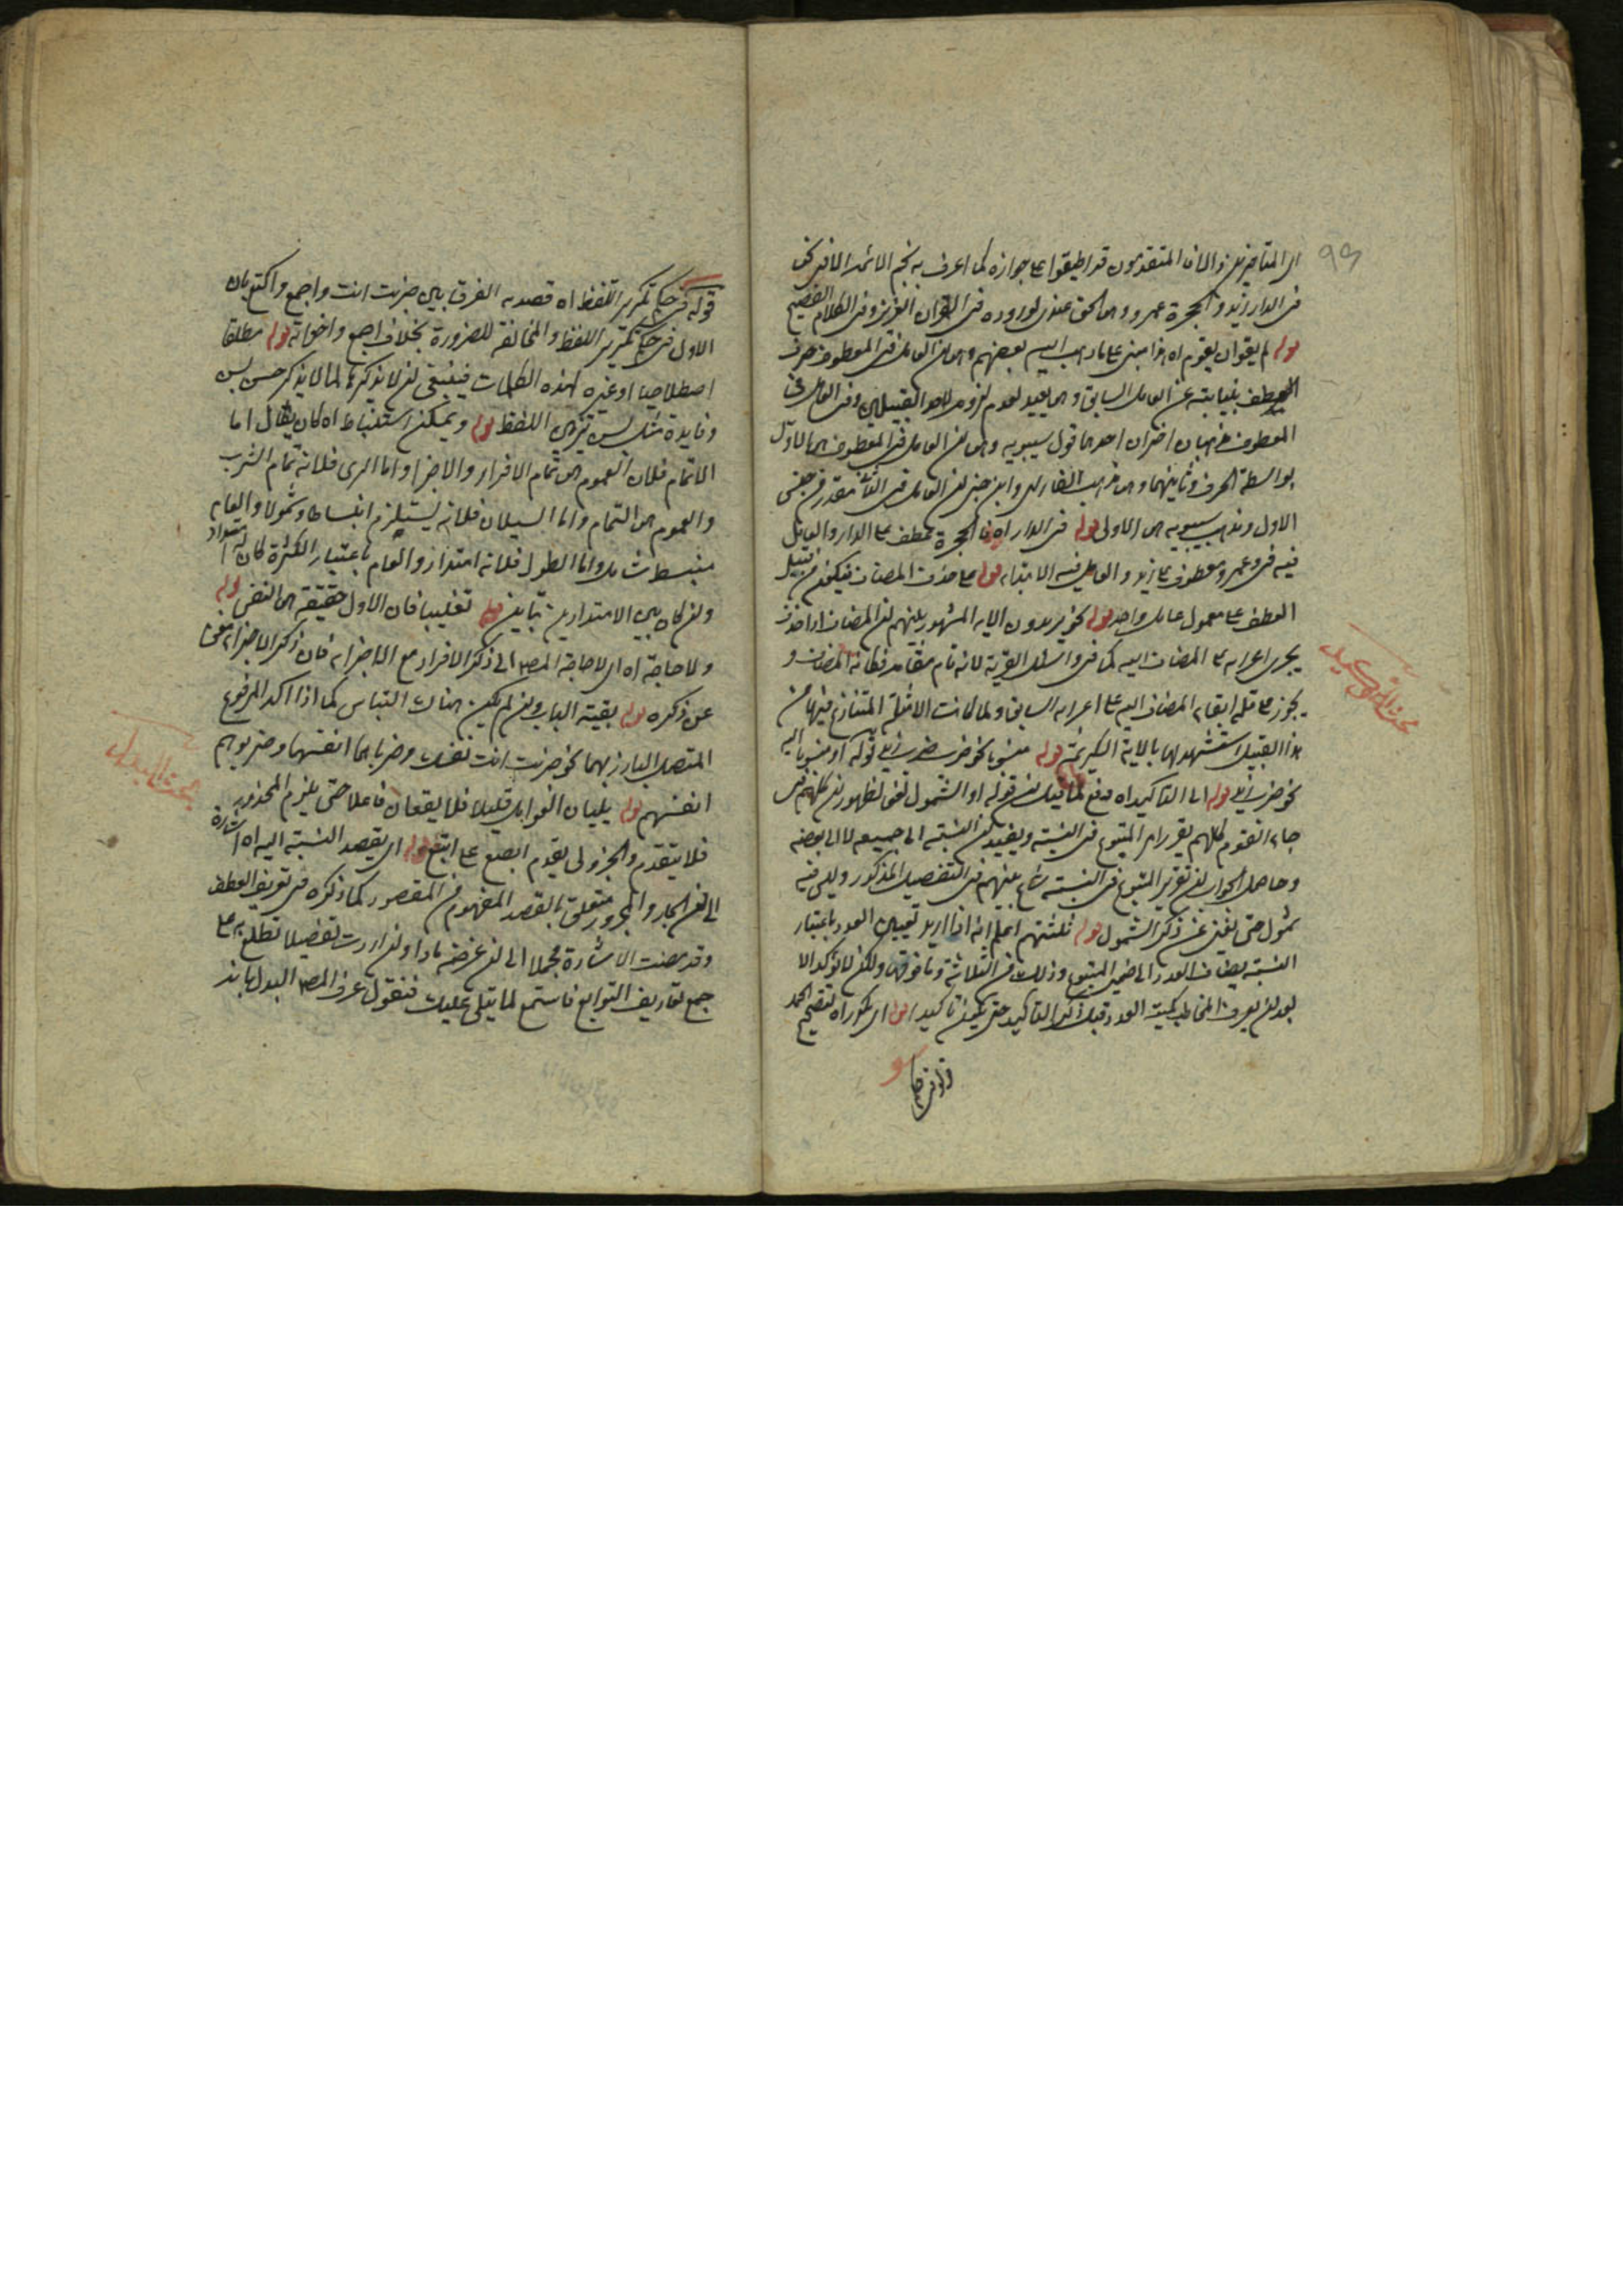 ٩٩
اى المتأخرين والا فالمتقدمون قد اطبقوا على جوازه كما اعرف به نجم الائمة الا فى نحو
فى الدار زيد والحجرة عمرو وهو الحق عندى لوروده فى القرآن العزيز وفى الكلام الفصيح
قوله لم يقو ان يقوم اه هذا مبنى على ما ذهب اليه بعضهم وهو ان العامل فى المعطوف حرف
العطف بنيابته عن العامل السابق وهو بعيد لعدم لزومه لاحد القبيلين وفى العامل فى
المعطوف مذهبان اخران احدهما قول سيبويه وهو ان العامل فى المعطوف هو الاول
بواسطة الحرف وثانيهما وهو مذهب الفارسى وابن جنى ان العامل فى الثانى مقدر من جنس
الاول ومذهب سيبويه هو الاولى قوله فى الدار اه فالحجرة عطف على الدار والعامل
فيه فى وعمرو معطوف على زيد والعامل فيه الابتداء قوله على حذف المضاف فيكون من قبيل
العطف على معمول عامل واحد قوله نحو يريدون الاية المشهور بينهم ان المضاف اذا حذف
يجرى اعرابه على المضاف اليه كما فى واسئل القرية لانه قام مقامه فكانه المضاف و
يجوز على قلة ابقاء المضاف اليه على اعرابه السابق ولما كانت الامثلة المتنازع فيها من
هذا القبيل استشهد لها بالاية الكريمة قوله منسوبا نحو ضرب ضرب زيد قوله او منسوبا اليه
نحو ضرب زيد زيد قوله اى التاكيد اه دفع لما قيل ان قوله او الشمول لغو لظهور ان كلهم فى
جاء القوم كلهم يقرر امر المتبوع فى النسبة ويفيد ان النسبة الى جميعه لا الى بعضه
وحاصل الجواب ان تقرير المتبوع فى النسبة شاع بينهم فى التفصيل المذكور وليس فيه
شمول حتى يغنى عن ذكر الشمول قوله ثلثتهم اعلم انه اذا اريد تعيين العدد باعتبار
النسبة يضاف العدد الى ضمير المتبوع وذلك فى الثلاثة وما فوقها ولكن لا تؤكد الا
بعد ان يعرف المخاطب كمية العدد قبل ذكر التاكيد حتى يكون تاكيدا قوله اى مكرراه لتصحيح الحمل
قوله فى حكم
بحث التوكيد
قوله فى حكم تكرير اللفظ اه قصد به الفرق بين ضربت انت واجمع واكتع بان
الاول فى حكم تكرير اللفظ والمخالفة للضرورة بخلاف اجمع واخواته قوله مطلقا
اصطلاحيا او غيره لهذه الكلمات فينبغى ان لا يذكرها كما لا يذكر حسن بسن
وفايدة مثل بسن تزيين اللفظ قوله ويمكن استنباط اه كان يقال اما
التمام فلان العموم هو تمام الافراد والاجزاء واما الرى فلانه تمام الشرب
والعموم هو التمام واما السيلان فلانه يستلزم انبساطا وشمولا والعام
منبسط شامل واما الطول فلانه امتداد والعام باعتبار الكثرة كان له امتداد
وان كان بين الامتدادين تباين قوله تغليبا فان الاول حقيقة هو النفس قوله
ولا حاجة اه اى لا حاجة المص الى ذكر الافراد مع الاجزاء فان ذكر الاجزاء مغن
عن ذكره قوله بقية الباب وان لم يكن هناك التباس كما اذا اكد المرفوع
المتصل البارز بهما نحو ضربت انت نفسك وضرباهما انفسهما وضربوهم
انفسهم قوله يليان العوامل قليلا فلا يقعان فاعلا حتى يلزم المحذور
فلا يتقدم والجزولى يقدم ابصع على ابتع قوله اى يقصد النسبة اليه اه اشارة
الى ان الجار والمجرور متعلق بالقصد المفهوم من المقصور كما ذكره فى تعريف العطف
وقد مضت الاشارة مجملا الى ان غرضه ماذا وان اردت تفصيلا تطلع به على
جمع تعاريف التوابع فاستمع لما يتلى عليك فنقول عرف المص البدل بانه
بحث البدل